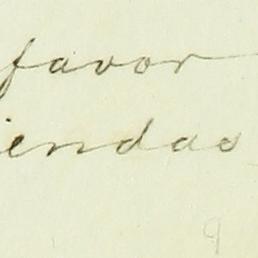 favor
iendas
9